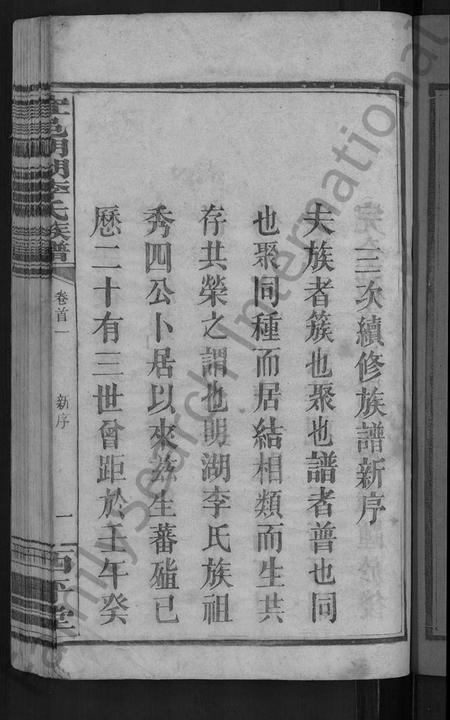 三次續修族譜新序
夫族者簇也聚也譜者普也同
也聚同種而居結相類而生共
存共榮之謂也明湖李氏族祖
秀四公卜居以來茲生蕃殖已
歷二十有三世曾距於壬午癸
宜邑明湖李氏族譜
卷首一
新序
一
西平堂
Family Search International